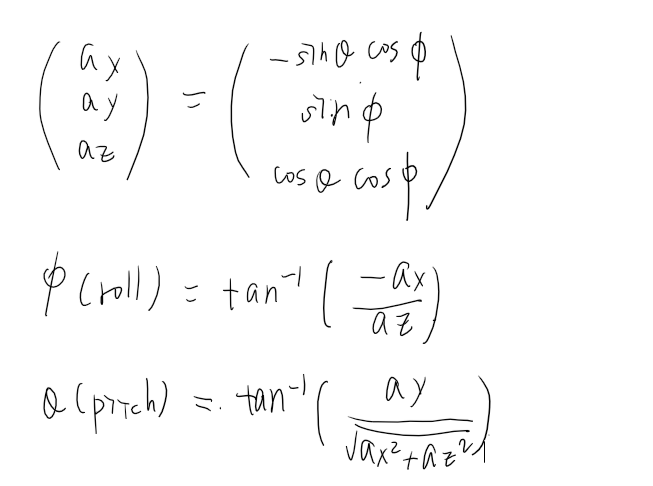 (ax ay az) = (-sinθ cosϕ sinϕ cosθ cosϕ)
ϕ(roll) = tan⁻¹(-ax/az)
θ(pitch) = tan⁻¹(ay/√(ax²+az²))